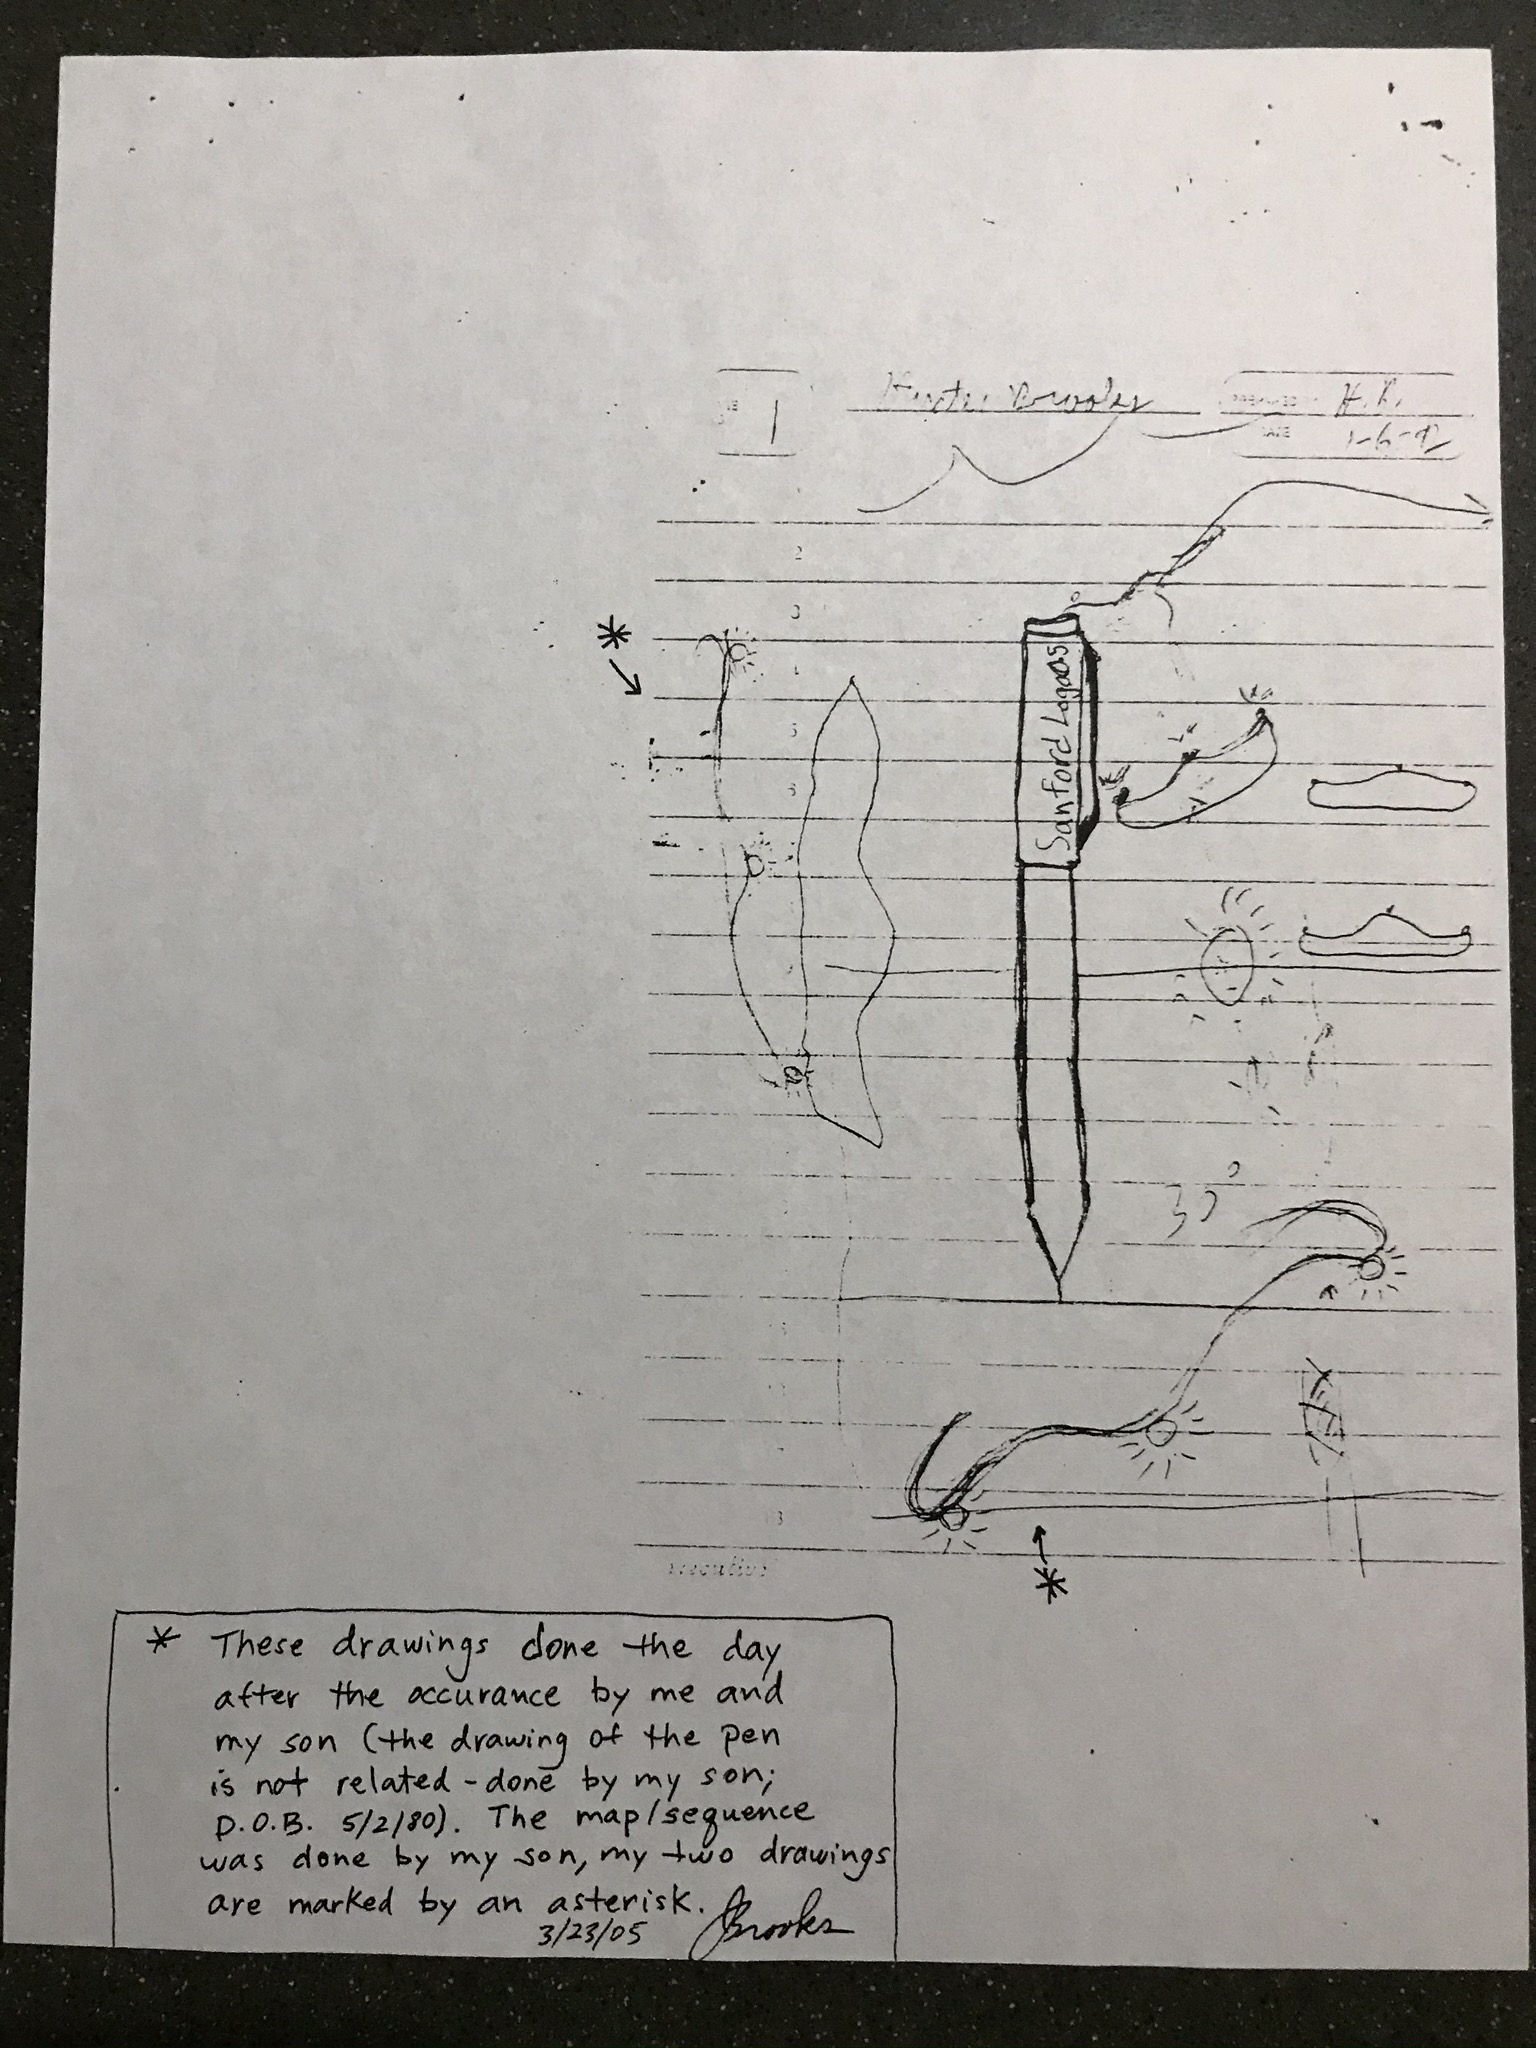 1
Brooks
H.B.
DATE 1-6-92
2
3
4
5
6
Sanford Logaas
*
35°
7
8
executive
*
* These drawings done the day
after the accurance by me and
my son (the drawing of the pen
is not related - done by my son;
D.O.B. 5/2/80). The map/sequence
was done by my son, my two drawings
are marked by an asterisk.
3/23/05 JBrooks